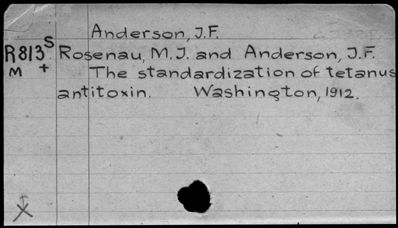 Anderson, J.F.
R813 S Rosenau, M.J. and Anderson, J.F.
M + The standardization of tetanus
antitoxin. Washington, 1912.
X